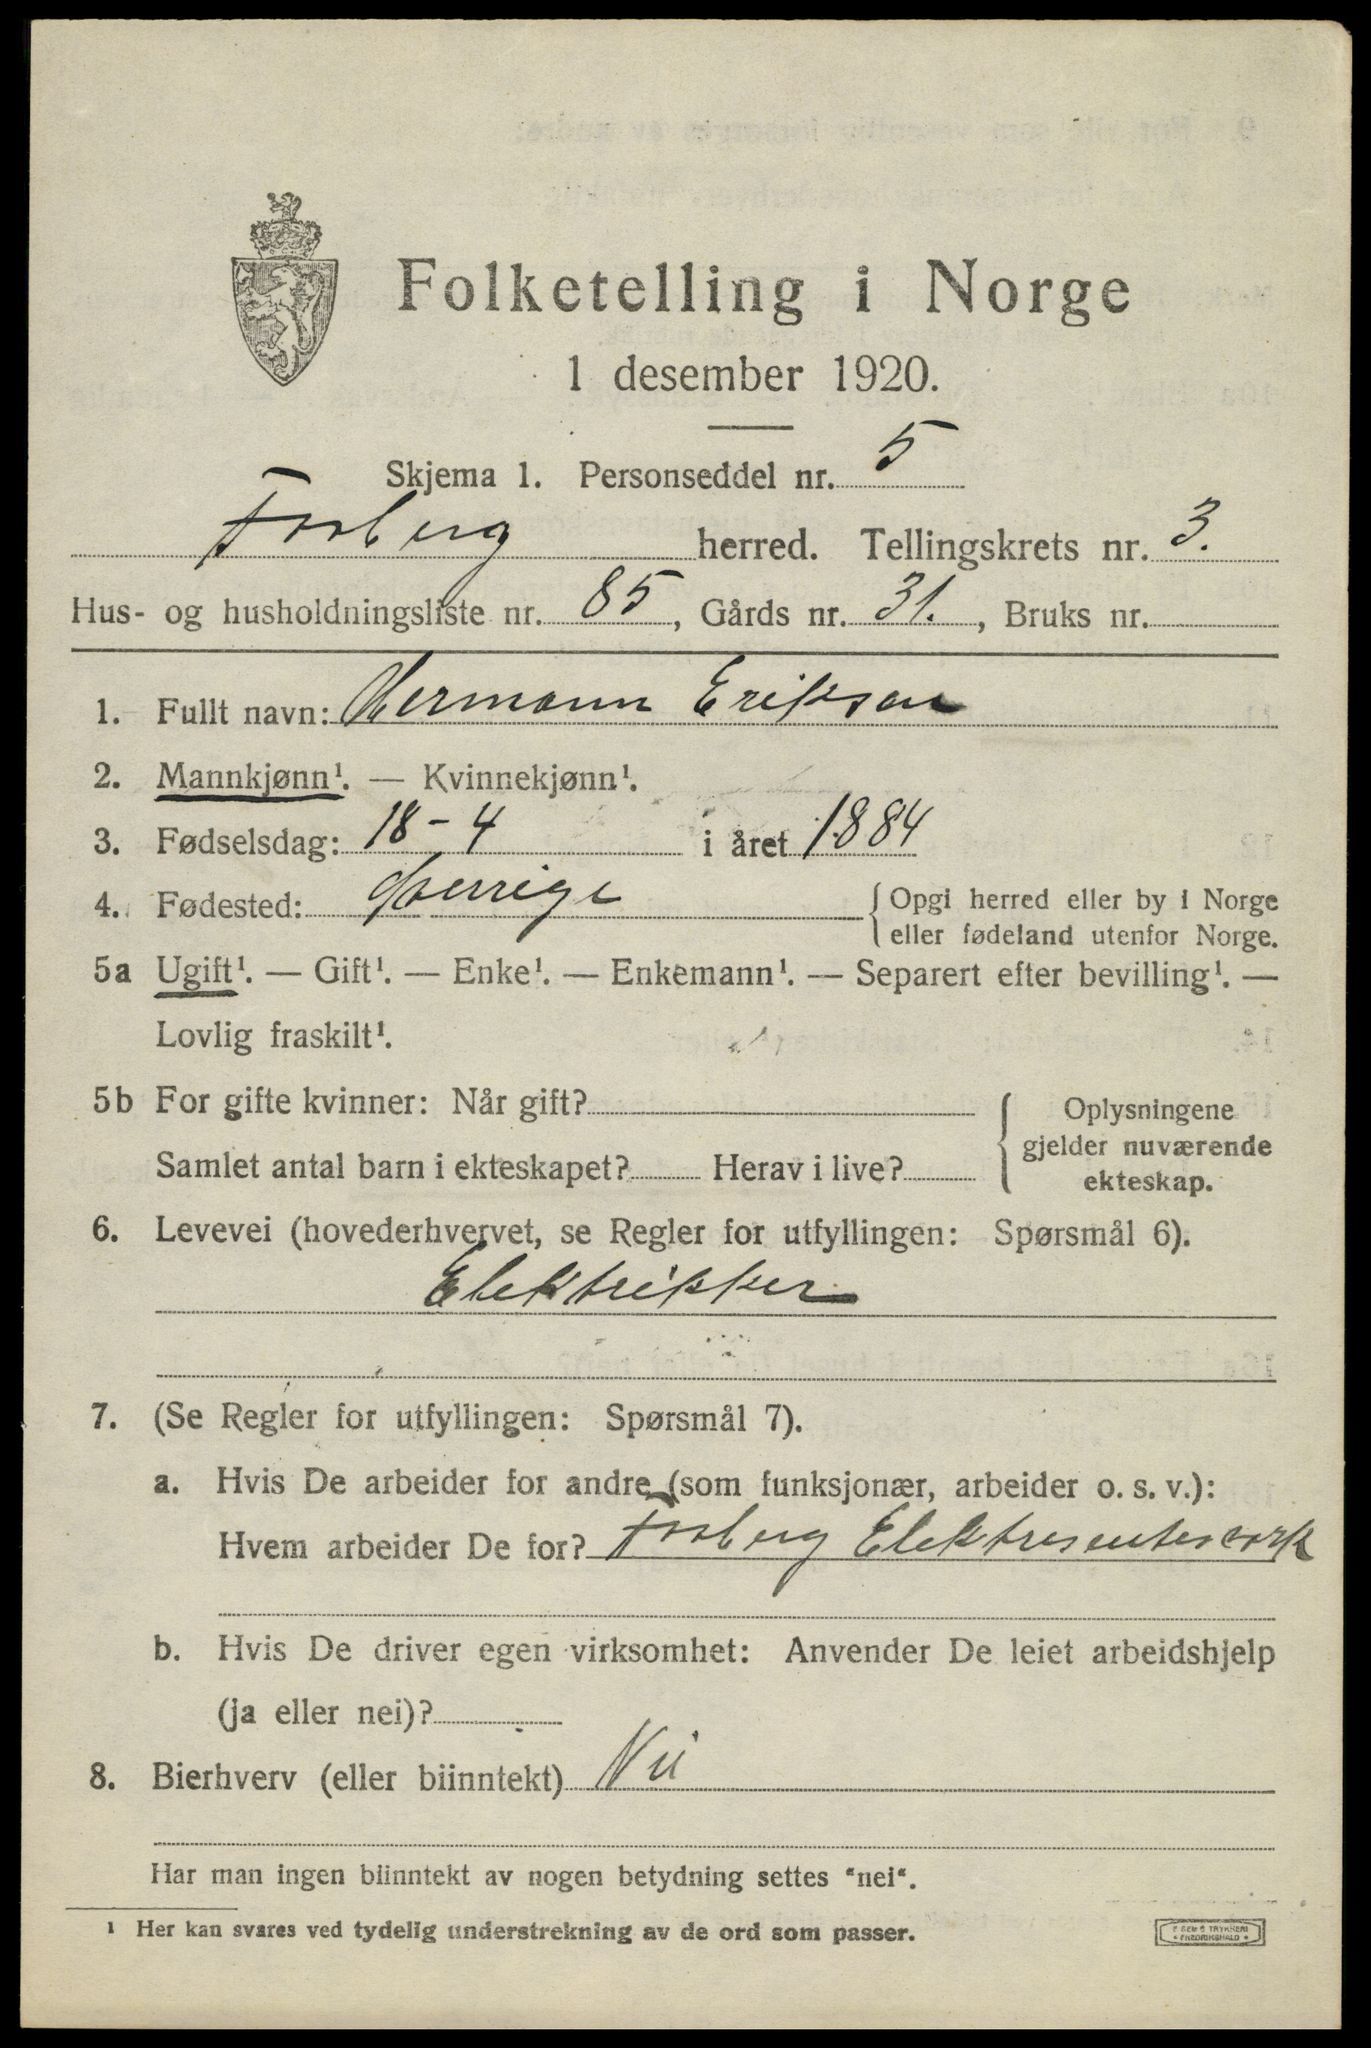 Folketelling i Norge
1 desember 1920.
Skjema 1. Personseddel nr. 5
Fosberg herred. Tellingskrets nr. 3.
Hus- og husholdningsliste nr. 85, Gårds nr. 31., Bruks nr.
1. Fullt navn: Hermann Erikson
2. Mannkjønn¹. — Kvinnekjønn¹.
3. Fødselsdag: 18-4 i året 1884
4. Fødested: Sverrige { Opgi herred eller by i Norge
eller fødeland utenfor Norge.
5a Ugift¹. — Gift¹. — Enke¹. — Enkemann¹. — Separert efter bevilling¹. —
Lovlig fraskilt¹.
5b For gifte kvinner: Når gift?
Samlet antal barn i ekteskapet? Herav i live?
{ Oplysningene
gjelder nuværende
ekteskap.
6. Levevei (hovederhvervet, se Regler for utfyllingen: Spørsmål 6).
Elektrikker
7. (Se Regler for utfyllingen: Spørsmål 7).
a. Hvis De arbeider for andre (som funksjonær, arbeider o. s. v.):
Hvem arbeider De for? Fosberg
b. Hvis De driver egen virksomhet: Anvender De leiet arbeidshjelp
(ja eller nei)?
8. Bierhverv (eller biinntekt) Nei
Har man ingen biinntekt av nogen betydning settes "nei".
¹ Her kan svares ved tydelig understrekning av de ord som passer.
TRYKKERI
FREDRIKSHALD